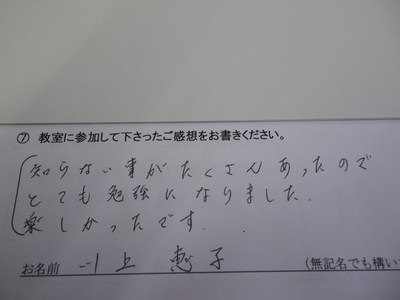 ⑦ 教室に参加して下さったご感想をお書きください。
知らない事がたくさんあったので
とても勉強になりました.
楽しかったです.
お名前 川上 恵子 (無記名でも構い